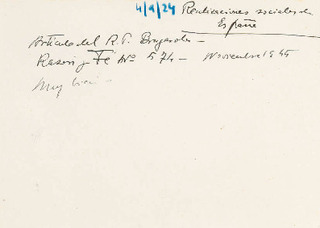 4/9/24 Realizaciones sociales de
España
Artículo del R. P. Brugarola —
Razon y Fé Nº 574 — Noviembre 1945
Muy bien —